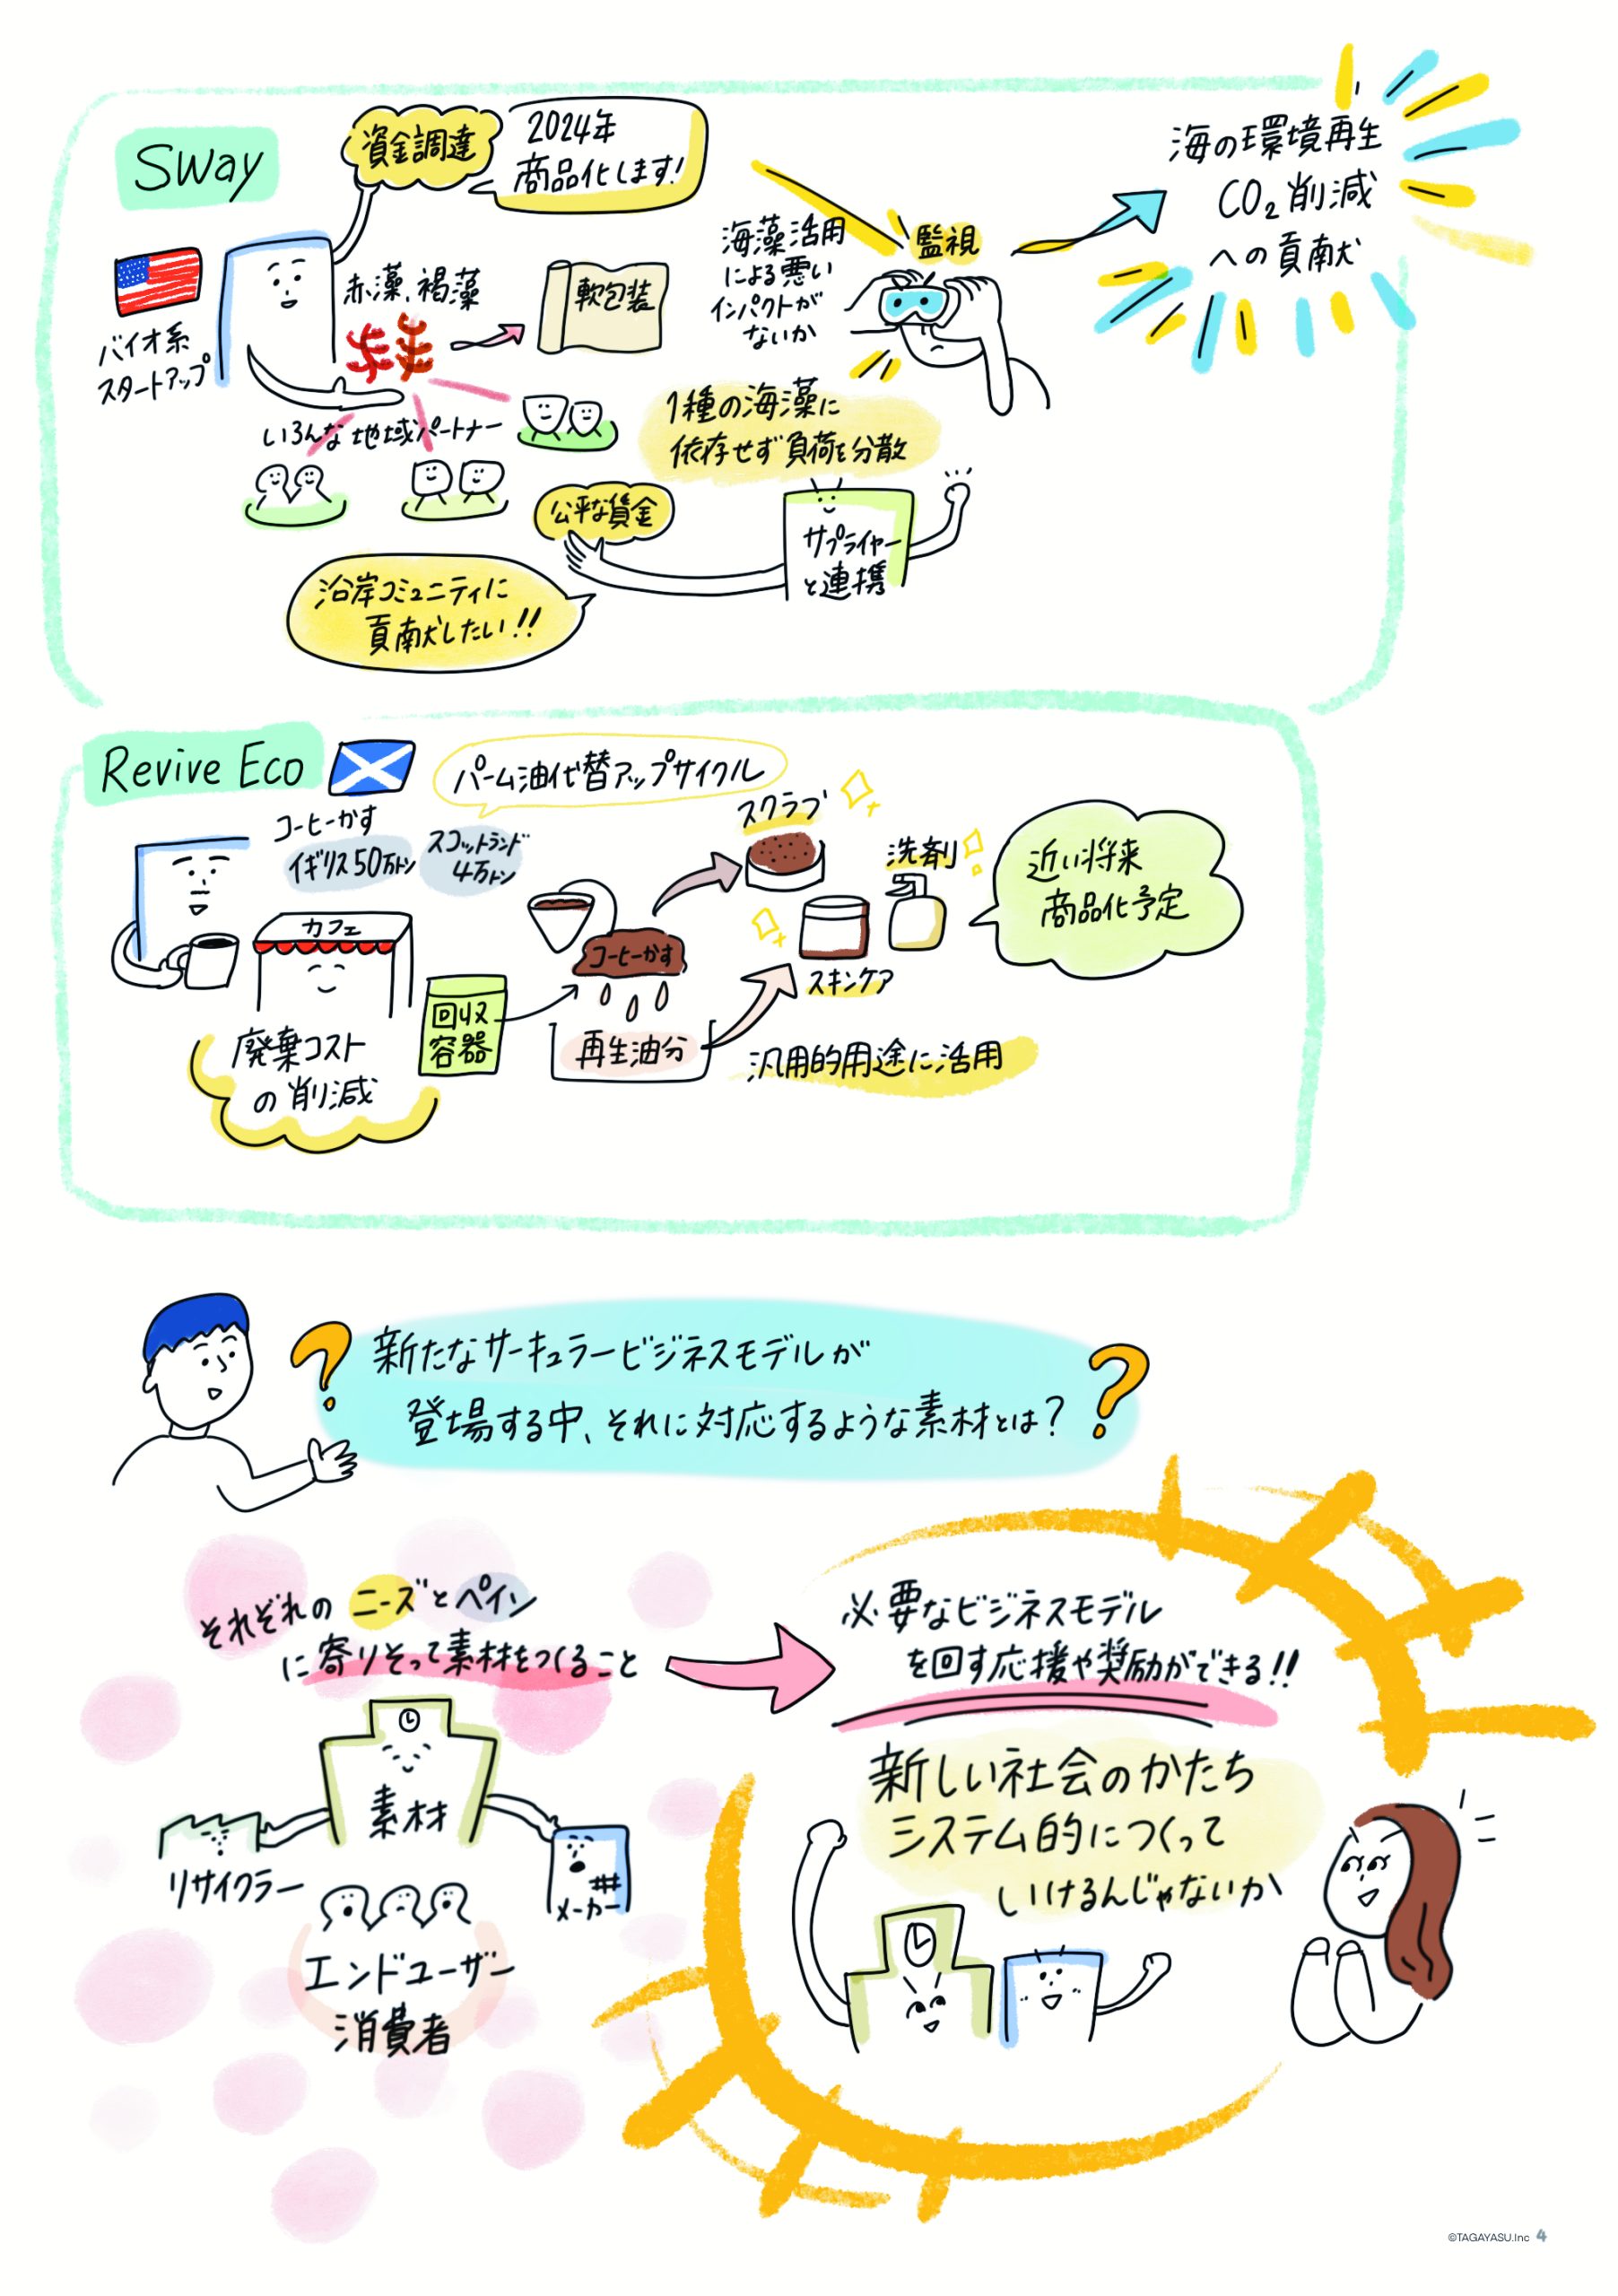 Sway
資金調達
2024年
商品化します!
バイオ系
スタートアップ
赤藻、褐藻
軟包装
いろんな地域パートナー
海藻活用
による悪い
インパクトが
ないか
監視
海の環境再生
CO₂削減
への貢献
1種の海藻に
依存せず負荷を分散
公平な賃金
サプライヤー
と連携
沿岸コミュニティに
貢献したい!!
Revive Eco
パーム油代替アップサイクル
コーヒーかす
イギリス50万トン
スコットランド
4万トン
カフェ
廃棄コスト
の削減
回収
容器
コーヒーかす
再生油分
スクラブ
洗剤
スキンケア
汎用的用途に活用
近い将来
商品化予定
?
新たなサーキュラービジネスモデルが
登場する中、それに対応するような素材とは?
?
それぞれのニーズとペイン
に寄りそって素材をつくること
素材
リサイクラー
メーカー
エンドユーザー
消費者
必要なビジネスモデル
を回す応援や奨励ができる!!
新しい社会のかたち
システム的につくって
いけるんじゃないか
©TAGAYASU.Inc 4